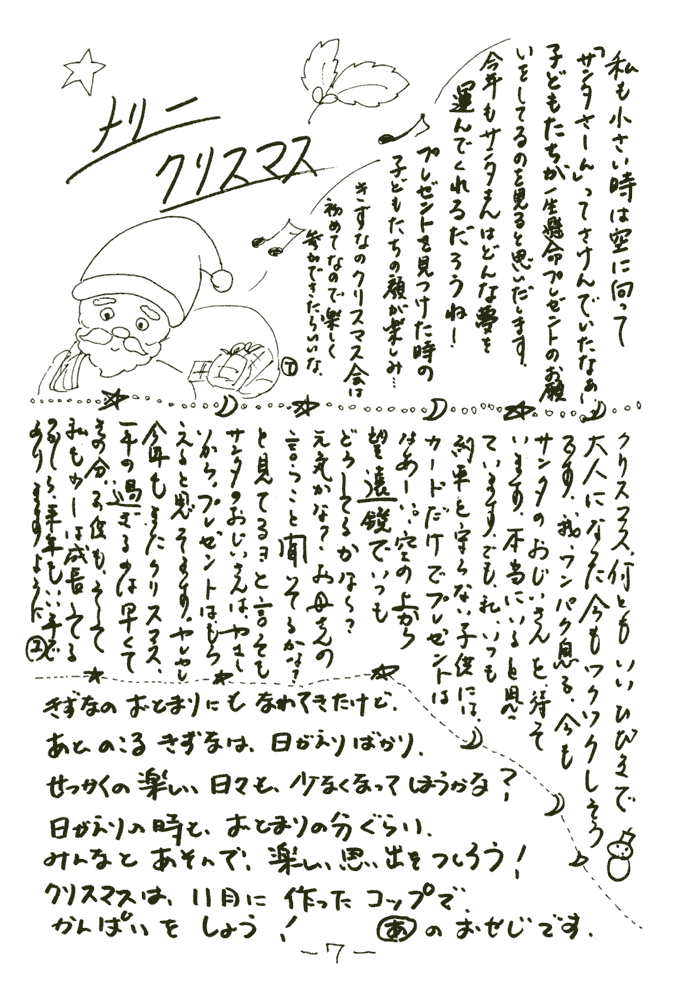 メリークリスマス
私も小さい時は空に向って
「サンタさーん」ってさけんでいたなぁ…
子どもたちが一生懸命プレゼントのお願
いをしてるのを見ると思いだします。
今年もサンタさんはどんな夢を
運んでくれるだろうね!
プレゼントを見つけた時の
子どもたちの顔が楽しみ…
きずなのクリスマス会は
初めてなので楽しく
参加できたらいいな。
クリスマス、何ともいいひびきで
大人になった今もワクワクしそう
です。我、ワンパク息子、今も
サンタのおじいさんを待って
います。本当にいると思っ
ています。でもね、いつも
約束を守らない子供には、
カードだけでプレゼントは
なぁーい。空の上から
望遠鏡でいつも
どうしてるかな〜?
元気かな?お母さんの
言うこと聞いてるかな?
と見てるヨと言っても
サンタのおじいさんは、やさし
いから。プレゼントはもら
えると思ってます。
今年もまたクリスマス、
一年の過ぎるのは早くて
その分、子供も、そして
私も少しは成長してる
かしら、来年もいい年で
ありますように
きずなの おとまりにも なれてきたけど、
あと のこる きずなは、日がえり ばかり、
せっかくの 楽しい 日々も、少なくなって しまうかな?
日がえりの 時も、おとまりの 分ぐらい、
みんなと あそんで、楽しい 思い出を つくろう!
クリスマスは、11月に 作った コップで
かんぱいを しよう!
あ の おせじです.
-7-